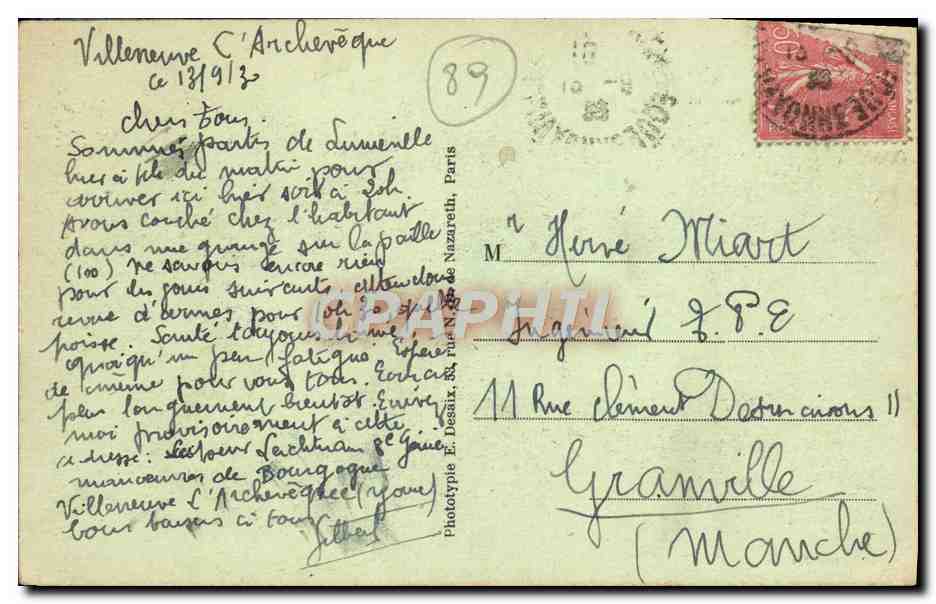 Villeneuve l'Archevêque
ce 13/9/30
89
Chers tous.
Sommes partis de Lunéville
hier à du matin pour
arriver ici hier soir à 20h.
Avons couché chez l'habitant
dans une grange sur la paille
(100) Ne savons encore rien
pour les jours suivants. Attendons
revue d'armes pour
poisse. Santé toujours bonne,
quoiqu'un peu fatigué. Espère
de même pour vous tous. Ecrirai
plus longuement bientôt. Envoyez
moi provisoirement à cette
adresse: Sapeur 8e Génie
manoeuvres de Bourgogne
Villeneuve l'Archevêque (Yonne)
bons baisers à tous
Gilbert
Phototypie E. Desaix, 32, rue N.-D. de Nazareth, Paris
CPAPHIL
Mr Hervé Miart
Ingénieur T.P.E
11 Rue Clément Desmaisons 11
Granville
(Manche)
YONNE
YONNE